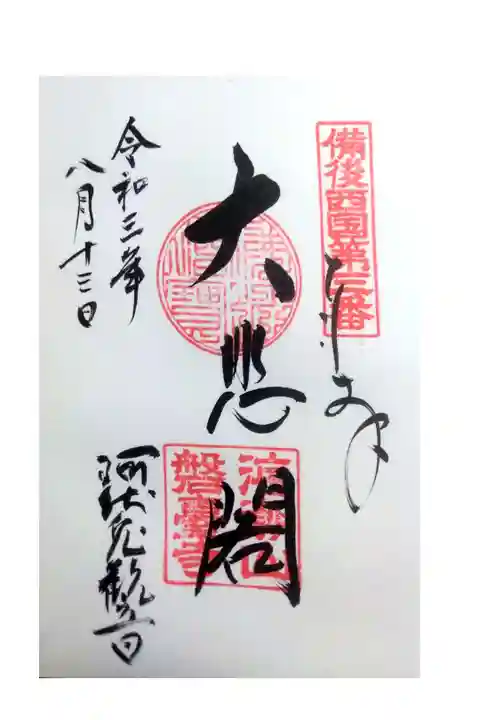 備後西国第三番
奉拝
大悲閣
磐臺寺
令和三年
八月十三日
阿伏兎観音